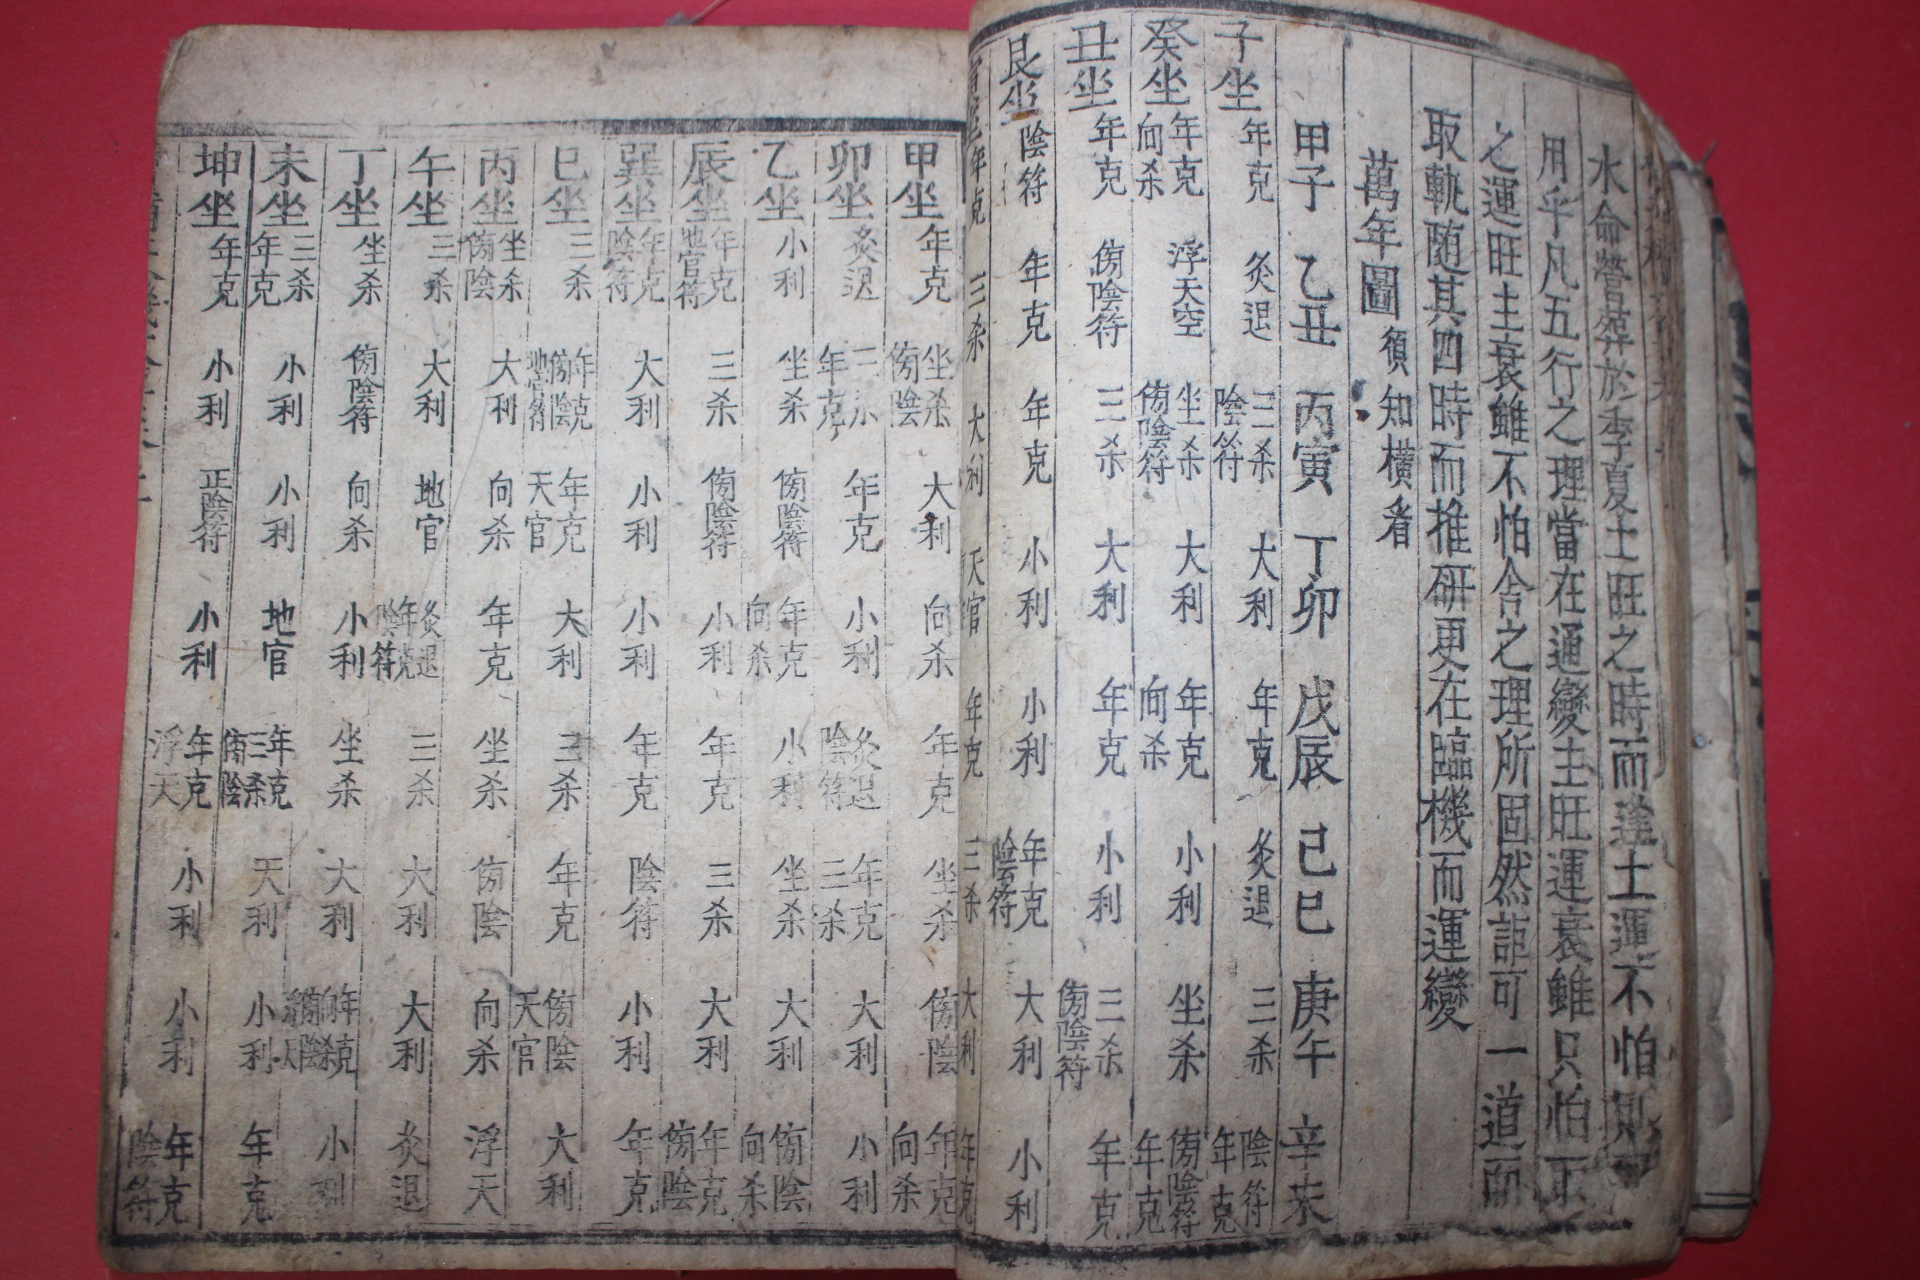 水命營葬於季夏土旺之時而逢土運不怕
用乎凡五行之理當在通變主旺運衰雖只怕
之運旺主衰雖不怕合之理所固然詎可一道而
取軌随其四時而推研更在臨機而運變
萬年圖 須知橫看
甲子 乙丑 丙寅 丁卯 戊辰 己巳 庚午 辛未
子坐 年克 灸退 三杀陰符 大利 年克 灸退 三杀 陰符年克
癸坐 年克向杀 浮天空 坐杀傍陰符 大利 年克向杀 小利 坐杀 傍陰符年克
丑坐 年克 傍陰符 三杀 大利 年克 小利 三杀傍陰符 年克
艮坐 陰符 年克 年克 小利 小利 年克陰符 大利 小利
年克 三杀 大利 天官 年克 三杀 大利 年克
甲坐 年克 坐杀傍陰 大利 向杀 年克 坐杀 傍陰 年克向杀
卯坐 灸退 三杀年克 年克 小利 灸退陰符 年克三杀 大利 小利
乙坐 小利 坐杀 傍陰符 年克向杀 小利 坐杀 大利 傍陰向杀
辰坐 年克地官符 三杀 傍陰符 小利 年克 三杀 大利 年克傍陰
巽坐 年克陰符 大利 小利 小利 年克 陰符 小利 年克
巳坐 三杀 年克傍陰地官符 年克天官 大利 三杀 年克 傍陰天官 大利
丙坐 坐杀傍陰 大利 向杀 年克 坐杀 傍陰 向杀 浮天
午坐 三杀 大利 地官 灸退年克陰符 三杀 大利 大利 灸退
丁坐 坐杀 傍陰符 向杀 小利 坐杀 大利 年克向杀傍陰浮天 小利
未坐 三杀年克 小利 小利 地官 年克三杀傍陰 天利 小利 年克
坤坐 年克 小利 正陰符 小利 年克浮天 小利 小利 年克陰符